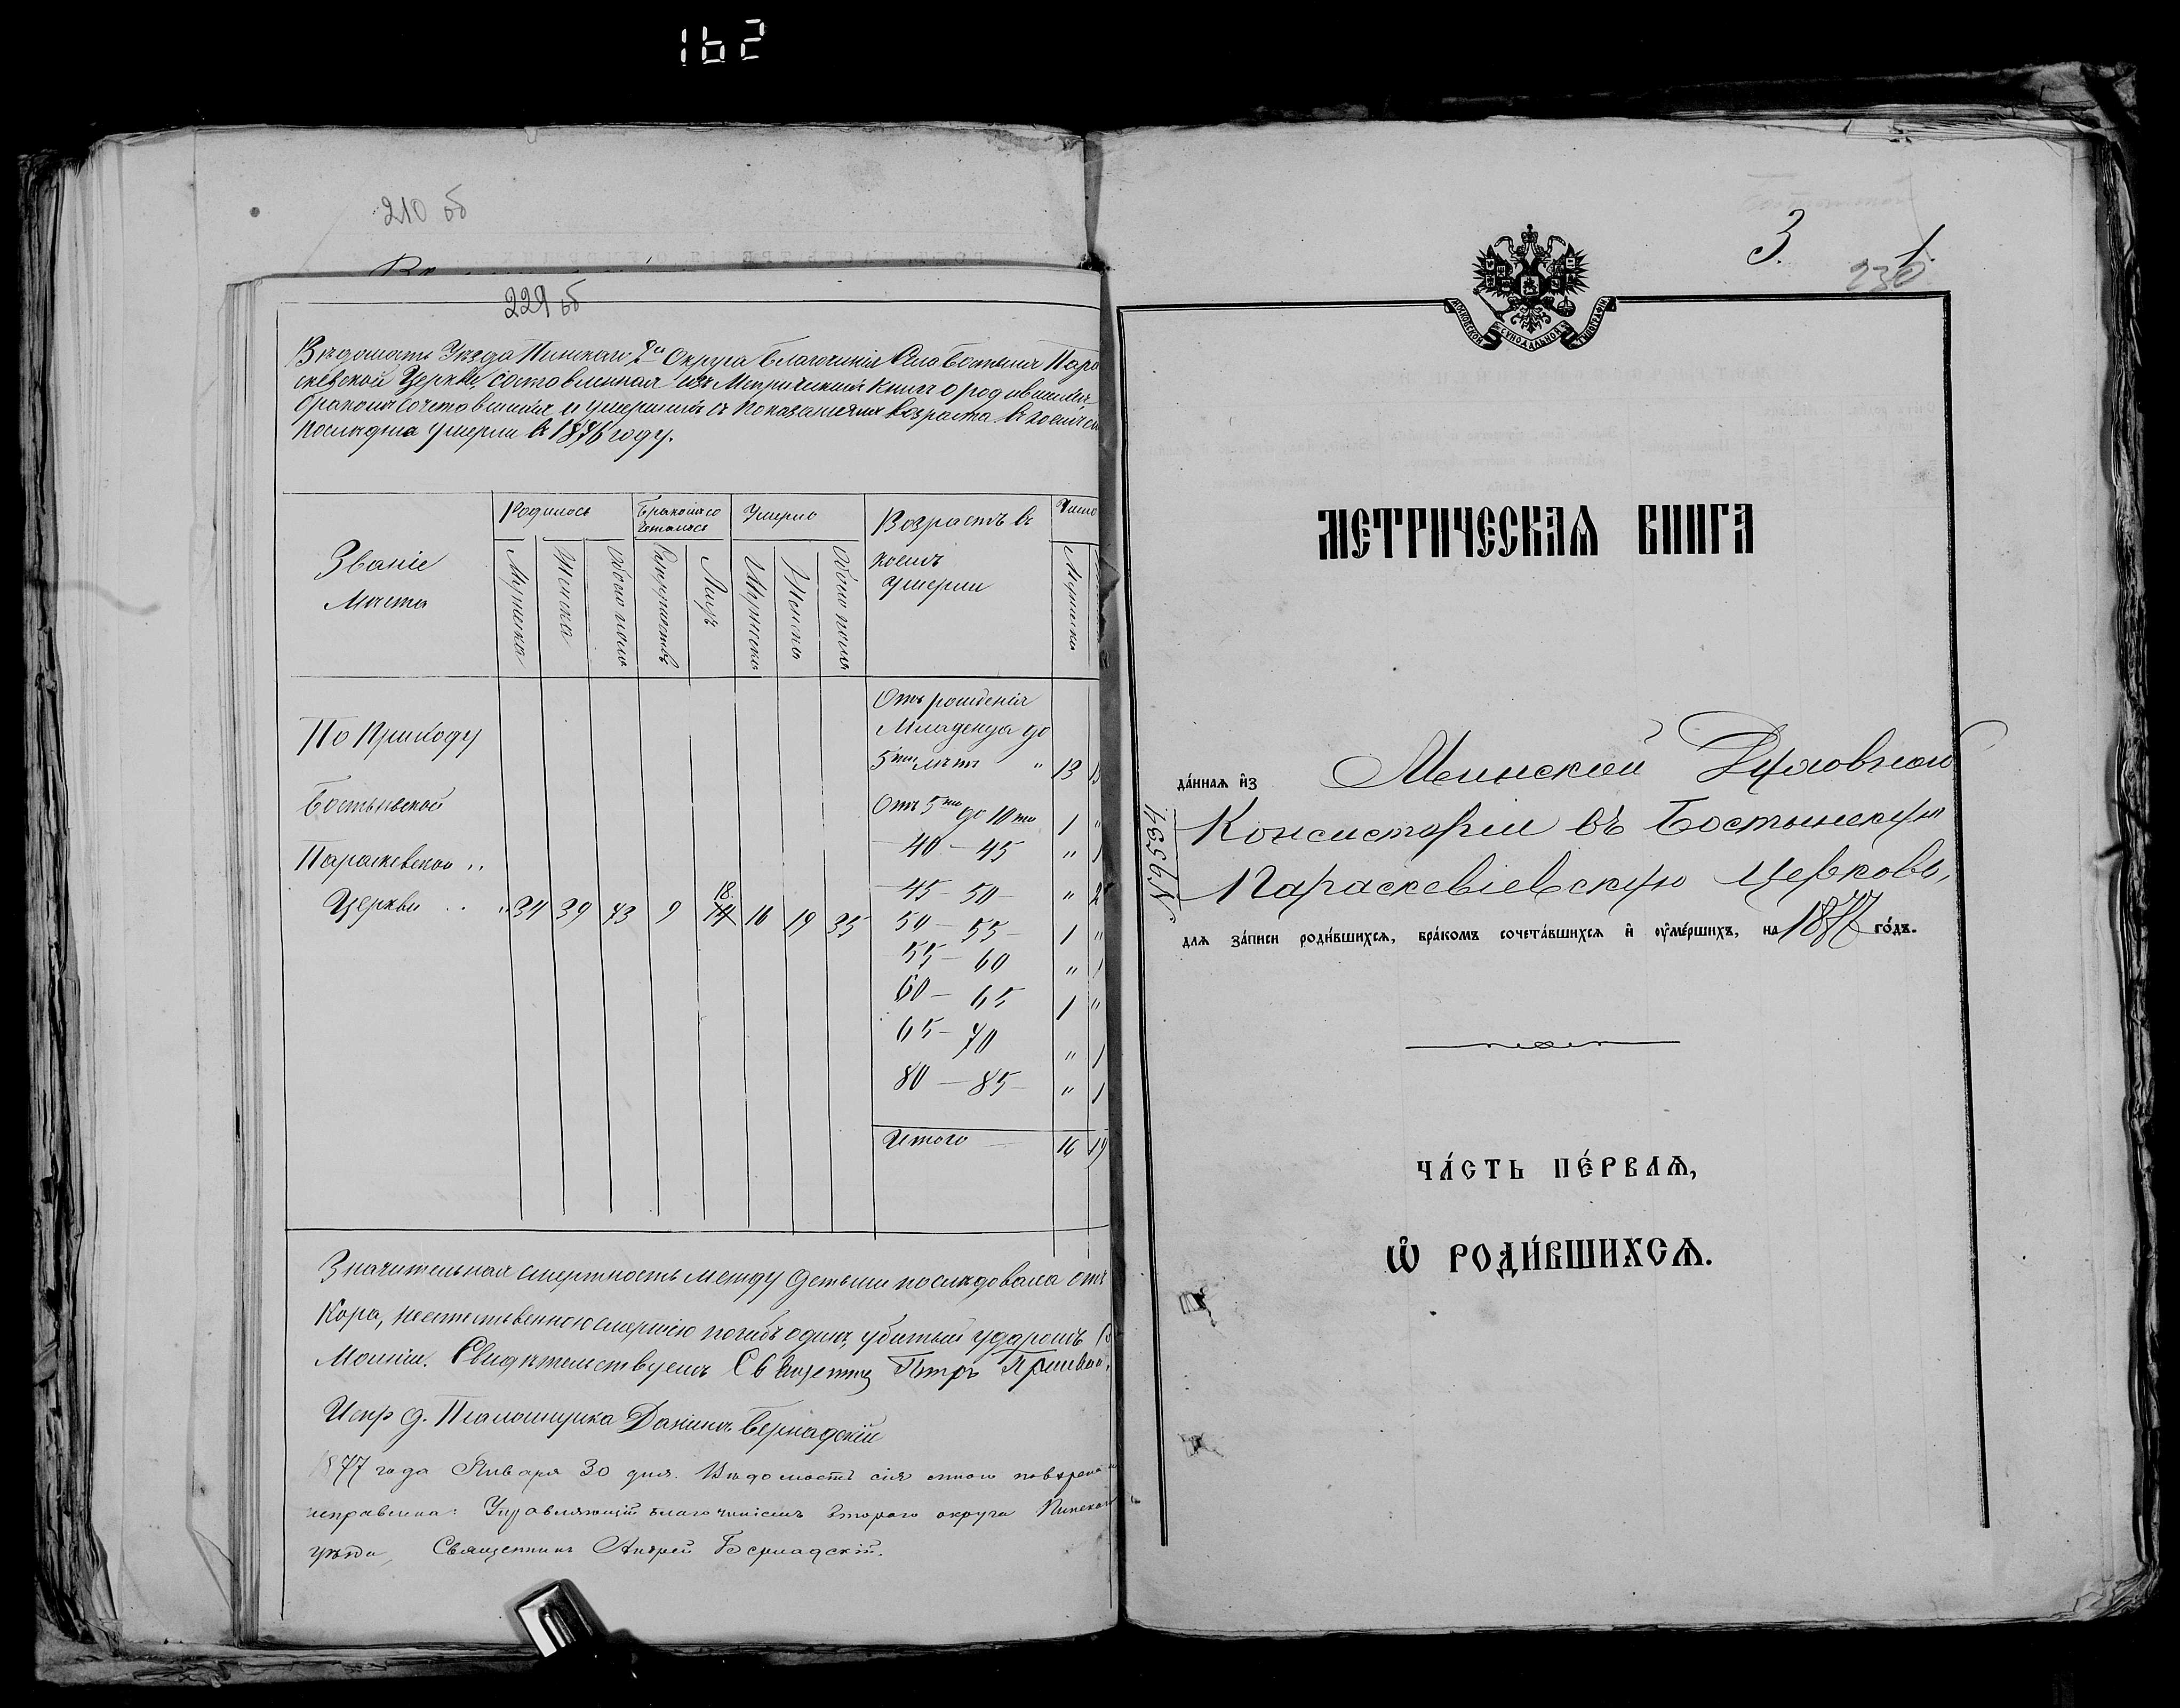 162
210 об
229 об
Вѣдомость Уѣзда Пинскаго 2го Округа Благочинія Села Бостыня Пара
скевской Церкви, составленная изъ Метрической книги о родившихся
бракомъ сочетавшихся и умершихъ съ показаніемъ возраста въ коемъ сіи
последніе умерли въ 1876 году.
Званіе
Мѣста
Родилось
Бракомъ со
четалось
Умерло
Возрастъ въ
коемъ
умерли
Число
Мужеска
Женска
Обоего пола
Супружествъ
Лицъ
Мужеска
Женска
Обоего пола
Мужеска
По Приходу
Бостынской
Параскевской ..
Церкви . . „ 34 39 73 9 18 14 16 19 35
Отъ рожденія
Младенца до
5ти лѣтъ „ 13
Отъ 5ти до 10ти 1 „
40 – 45 „ 1
45 – 50 – „ 2
50 – 55 – 1 „
55 – 60 „ 1
60 – 65 1 „
65 – 70 „ 1
80 – 85 – „ 1
Итого 16 19
Значительная смертность между детьми последовала отъ
Кора, неестественною смертію погибъ одинъ, убитый ударомъ
Молніи. Свидѣтельствуемъ Священникъ Петръ
Испр д. Псаломщика Даніилъ Бернадскій
1877 года Января 30 дня. Вѣдомость сія мною повѣрена и
исправлена: Управляющій благочиніемъ втораго округа Пинскаго
уѣзда, Священникъ Андрей Бернадскій.
3. 1.
230
МОСКОВСКОЙ СУНОДАЛЬНОЙ ТИПОГРАФІИ
МЕТРИЧЕСКАѦ КНИГА
да́ннаѧ и҆з Минской Духовной
Консисторіи въ Бостынскую
Параскевіевскую церковь,
длѧ за́писи роди́вшихсѧ, бра́комъ сочета́вшихсѧ и҆ ᲂу҆ме́ршихъ, на 1877 го́дъ.
№ 9534
ЧА́СТЬ ПЕ́РВАѦ,
Ѡ҆ РОДИ́ВШИХСѦ.